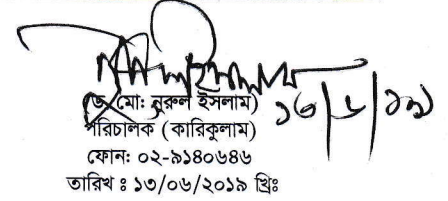 ১৩/৬/১৯
(ড. মো: নুরুল ইসলাম)
পরিচালক (কারিকুলাম)
ফোন: ০২-৯১৪০৬৪৬
তারিখ ঃ ১৩/০৬/২০১৯ খ্রিঃ